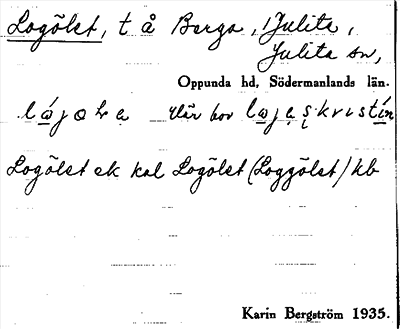 Logölet, t å Berga, i Julita,
Julita sn,
Oppunda hd, Södermanlands län.
där bor
Logölet ek kal Logölet (Loggölet) kb
Karin Bergström 1935.